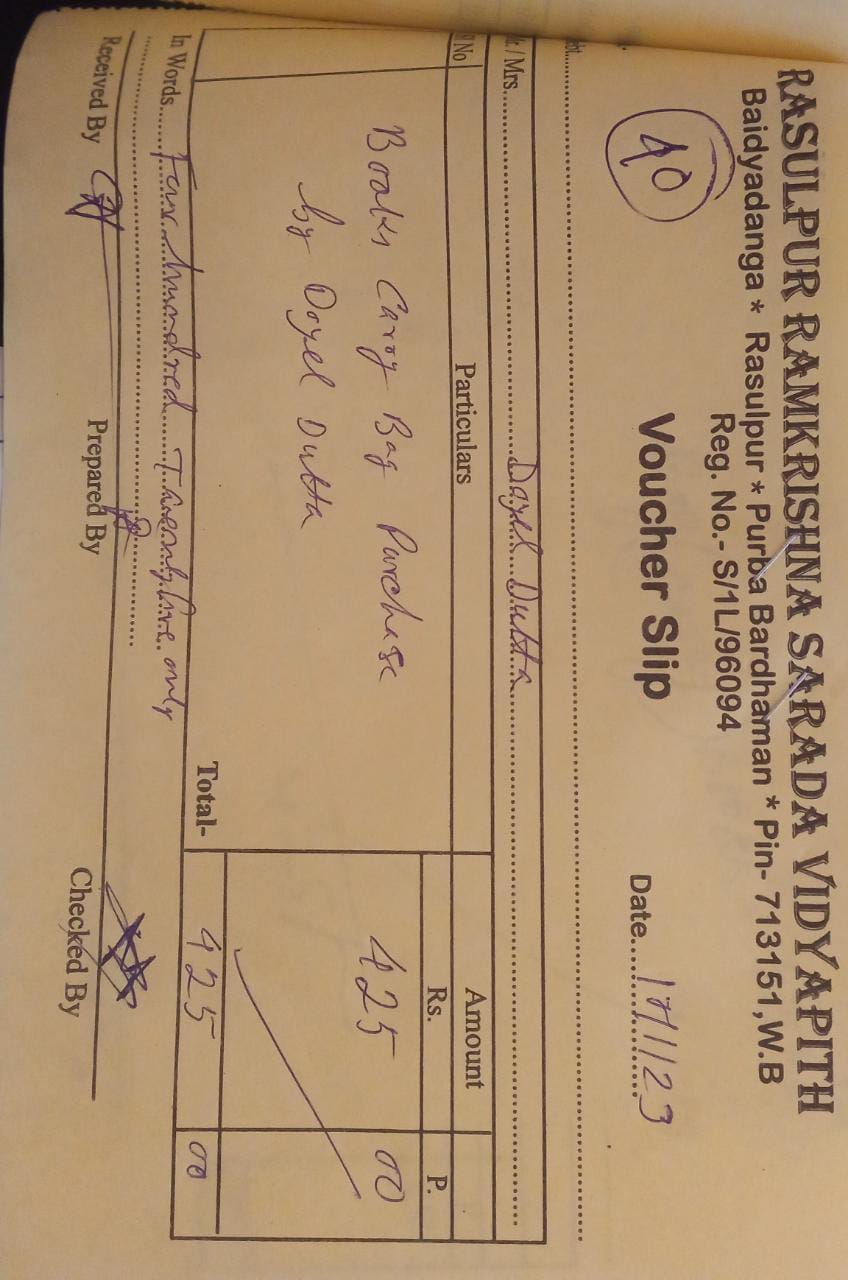 RASULPUR RAMKRISHNA SARADA VIDYAPITH
Baidyadanga * Rasulpur * Purba Bardhaman * Pin- 713151,W.B
Reg. No.- S/1L/96094
40 Voucher Slip Date
/ Mrs. Doyel Dutta
No Particulars Amount
Rs. P.
Books Carry Bag Purchase 425 00
by Doyel Dutta
Total- 425 00
In Words Four hundred Twenty five only
Received By Prepared By Checked By